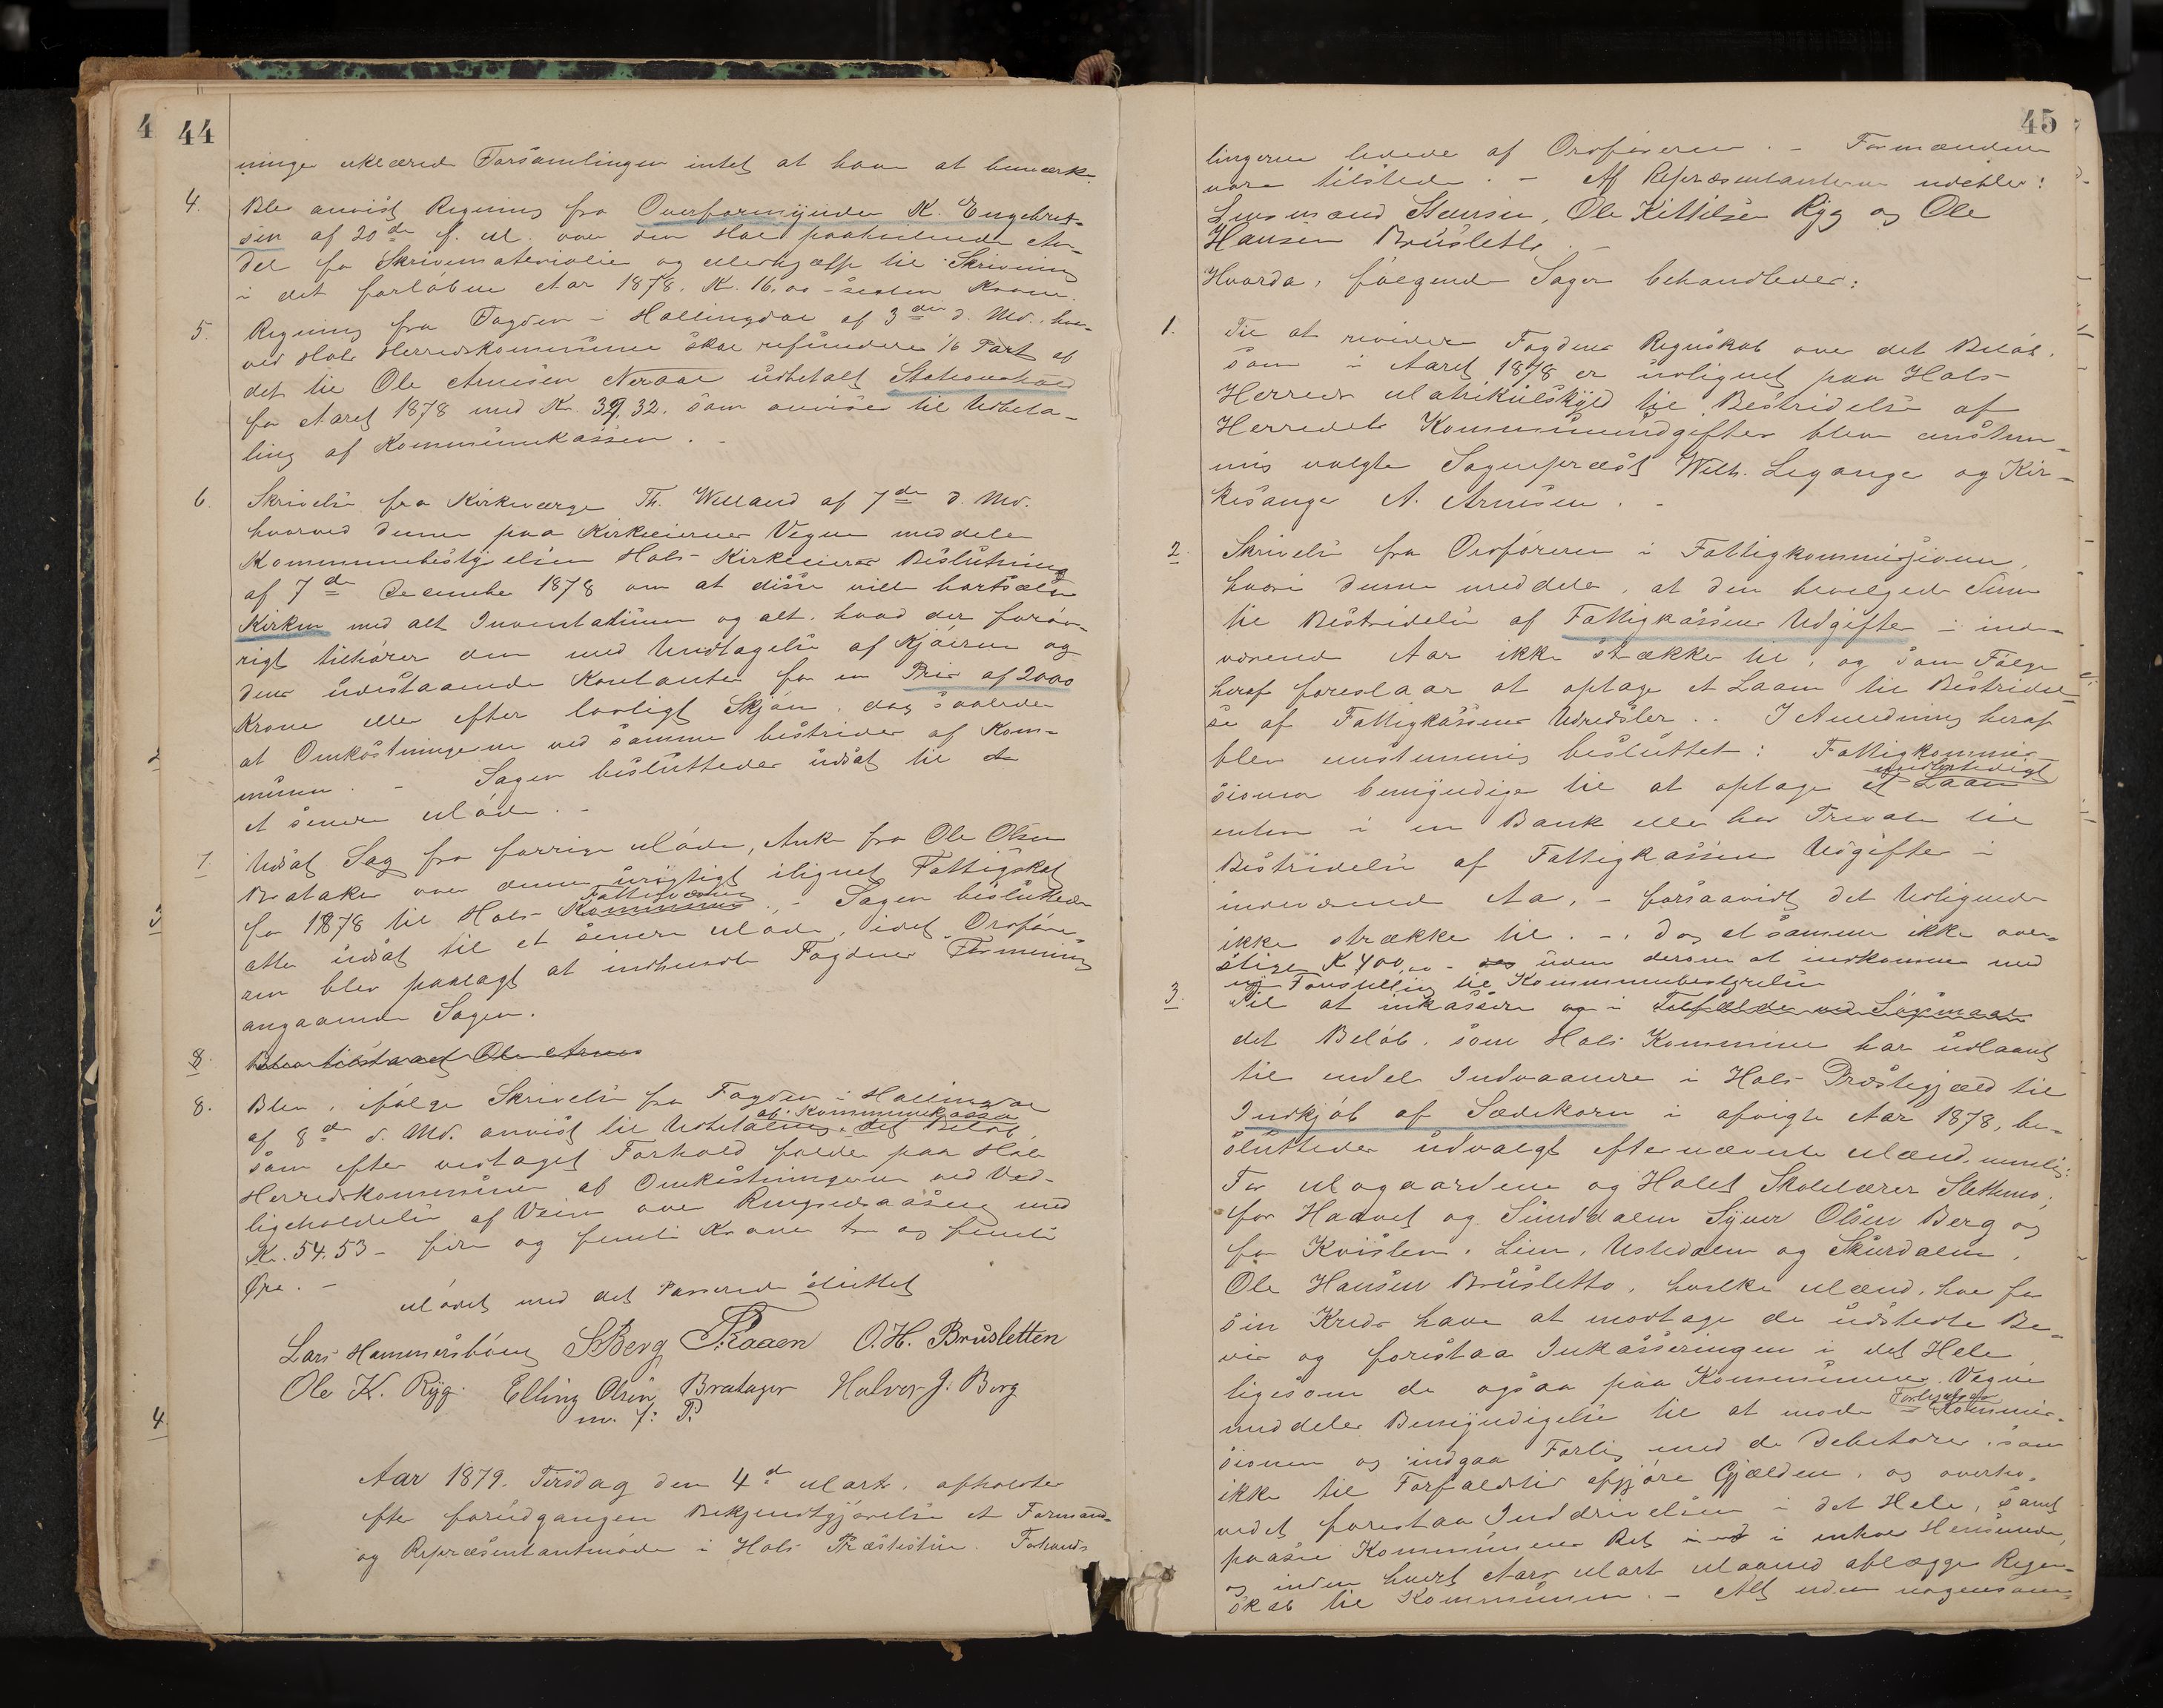 44
ninge erklærede Forsamlingen intet at have at bemærke.
4. Blev anvist Regning fra Overformynder K. Engebret-
sen af 20de f. M. over den Hol paahvilende An-
del for Skrivematerialier og Medhjælp til Skrivning
i det forløbne Aar 1878. Kr. 16,00 - sexten Kroner.
5. Regning fra Fogden i Hallingdal af 3die d. Md. hvor-
ved Hols Herredskommune skal refundere 1/6 Part af
det til Ole Arnesen Neraal udbetalt Stationshold
for Aaret 1878 med Kr. 39.32. som anvises til Udbeta-
ling af Kommunekassen. -
6 Skrivelse fra Kirkeværge Th. Welland af 7de d. Md.
hvorved denne paa Kirkeeiernes Vegne meddeler
Kommunebestyrelsen Hols Kirkeeieres Beslutning
af 7de December 1878 om at disse ville bortsælge
Kirken med alt Inventarium og alt, hvad der forøv-
rigt tilhører den med Undtagelse af Kjøerne og
dens udestaaende Kontanter for en Pris af 2000
Kroner eller efter lovligt Skjøn, dog saaledes
at Omkostningerne ved samme bestrides af Kom-
munen. - Sagen besluttedes udsat til
et senere Møde. -
7. Udsat Sag fra forrige Møde, Anke fra Ole Olsen
Brataker over denne urigtigt ilignet Fattigskat
for 1878 til Hols Kommune Fattigvæsen. - Sagen besluttedes
atter udsat til et senere Møde, idet Ordføre-
ren blev paalagt at indhente Fogdens Formening
angaaende Sagen.
8. tilstaaet Ole Arnes
8. Blev, ifølge Skrivelse fra Fogden i Hallingdal
af 8de d. Md. anvist til Udbetaling af Kommunekassen det Beløb,
som efter vedtaget Forhold falder paa Hols
Herredskommune af Omkostningerne ved Ved-
ligeholdelse af Veien over Ringnesaasen med
Kr. 54.53 - fire og femti Kroner tre og femti
Øre. -
Mødet med det Passerede sluttet
Lars Hammersbøen SBerg TRaaen O. H. Brusletten
Ole K. Ryg. Elling Olsen Brataker Halvor J. Berg
m. f: P.
Aar 1879. Tirsdag den 4de Marts. afholdtes
efter forudgangen Bekjendtgjørelse et Formands-
og Repræsentantmøde i Hols Præstestue. Forhand-
45
lingerne lededes af Ordføreren. - Formændene
vare tilstede. - Af Repræsentanterne udebleve:
Lensmand Stensen, Ole Kittilsen Ryg og Ole
Hansen Brusletto. -
Hvorda, følgende Sager behandledes:
1. Til at revidere Fogdens Regnskab over det Beløb,
som i Aaret 1878 er udlignet paa Hols
Herreds Matrikulskyld til Bestridelse af
Herredets Kommuneudgifter bleve enstem-
mig valgte Sognepræst Wilh. Legange og Kir-
kesanger A. Arnesen. -
2. Skrivelse fra Ordføreren i Fattigkommissionen,
hvori denne meddeler, at den bevilgede Sum
til Bestridelse af Fattigkassens Udgifter i inde-
værende Aar ikke strækker til, og som Følge
heraf foreslaar at optage et Laan til Bestridel-
se af Fattigkassens Udredsler. - I Anledning heraf
blev enstemmig besluttet: Fattigkommis-
sionen bemyndiges til at optage et midlertidigt Laan
enten i en Bank eller hos Private til
Bestridelse af Fattigkassens Udgifter i
indeværende Aar, - forsaavidt det Udlignede
ikke strækker til. -, dog at samme ikke over-
stiger Kr 400,00 - uden derom at indkomme med
ny Forestilling til Kommunebestyrelsen
3. Til at inkassere og i Tilfælde ved Søgsmaal
det Beløb, som Hols Kommune har udlaant
til endel Indvaanere i Hols Præstegjæld til
Indkjøb af Sædekorn i afvigte Aar 1878, be-
sluttedes udvalgt efternævnte Mænd, nemlig:
For Mogaardene og Holet Skolelærer Slettemo,
for Haavet og Sunddalen Syver Olsen Berg og
for Kvislen, Lien, Ustedalen og Skurdalen,
Ole Hansen Brusletto, hvilke Mænd, hver for
sin Kreds have at modtage de udstedte Be-
vis og forestaa Inkasseringen i det Hele,
ligesom de ogsaa paa Kommunens Vegne
meddeles Bemyndigelse til at møde i Forligelseskommis-
sionen og indgaa Forlig med de Debitorer, som
ikke til Forfaldstid afgjøre Gjælden, og overho-
vedet forestaa Inddrivelsen i det Hele, samt
paase Kommunens Ret i enhver Henseende,
og inden hvert Aars Marts Maaned aflægge Regn-
skab til Kommunen. - Alt uden nogensom-
1
3
4